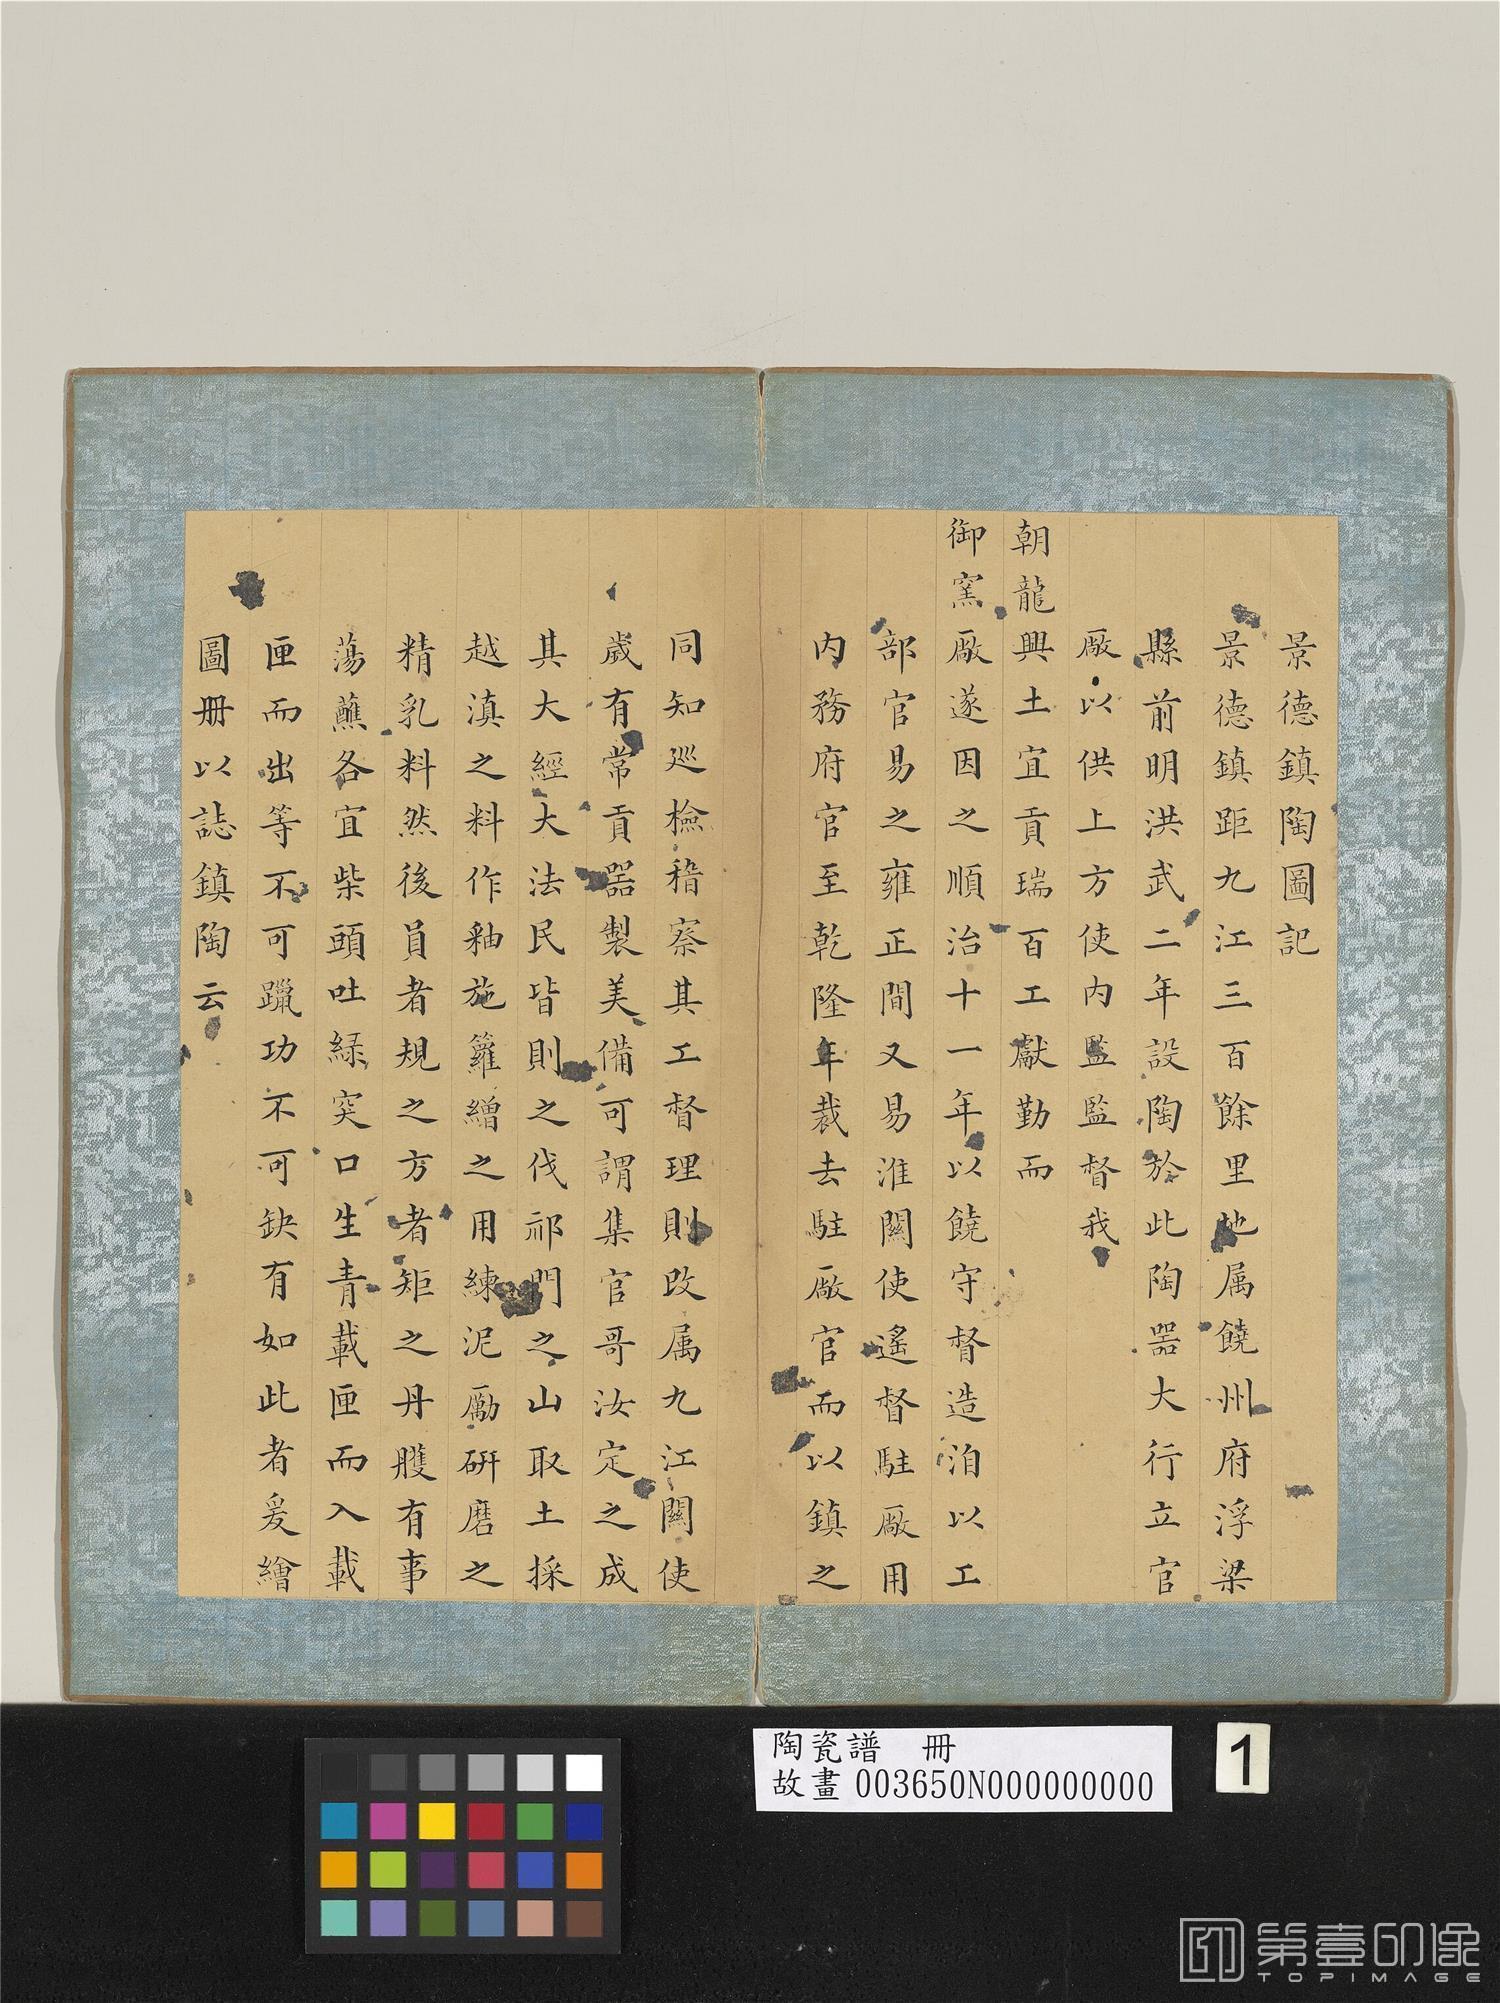 景德鎮陶圖記
景德鎮距九江三百餘里地属饒州府浮梁
縣前明洪武二年設陶於此陶器大行立官
厰以供上方使內監監督我
朝龍興土宜貢瑞百工獻勤而
御窯厰遂因之順治十一年以饒守督造洎以工
部官易之雍正間又易淮關使遙督駐厰用
內務府官至乾隆年裁去駐厰官而以鎮之
同知巡檢稽察其工督理則改属九江關使
歲有常貢器製美備可謂集官哥汝定之成
其大經大法民皆則之伐祁門之山取土採
越滇之料作釉施籮繒之用練泥勵研磨之
精乳料然後員者規之方者矩之丹雘有事
蕩蘸各宜柴頭吐綠突口生青載匣而入載
匣而出等不可躐功不可缺有如此者爰繪
圖冊以誌鎮陶云
陶瓷譜 冊
故畫 003650N000000000
1
第壹印像
TOPIMAGE